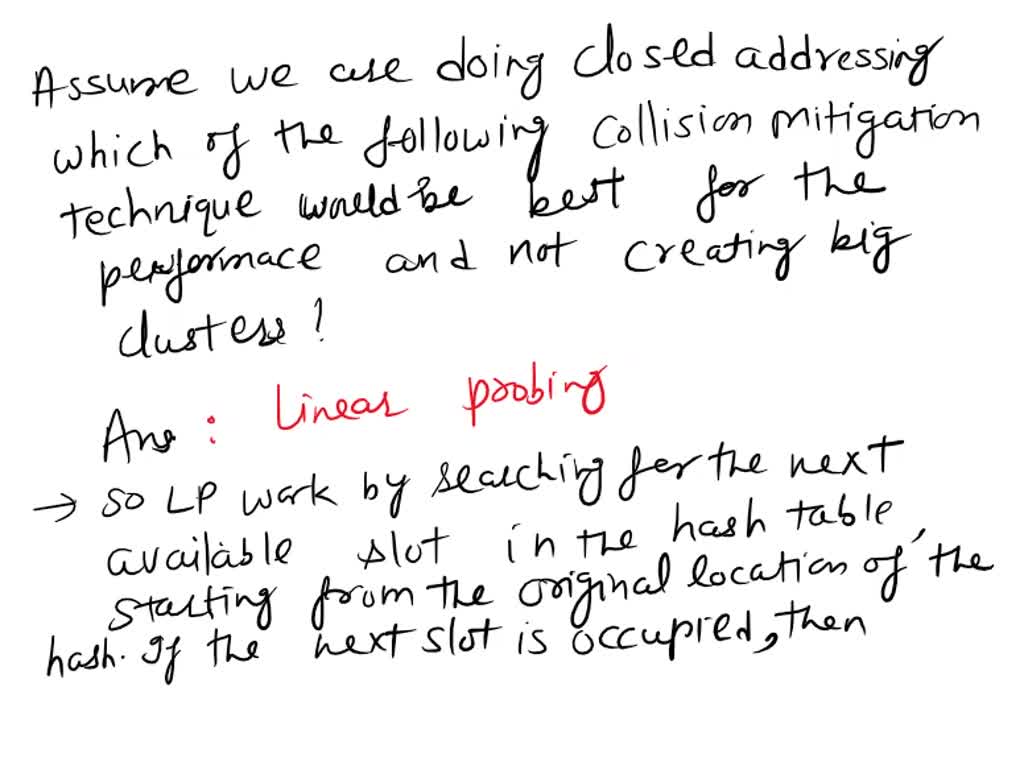 Assume we are doing closed addressing
which of the following collision mitigation
technique would be best for the
performace and not creating big
clusters?
Ans: Linear probing
→ so LP work by searching for the next
available slot in the hash table,
starting from the original location of the
hash. If the next slot is occupied, then